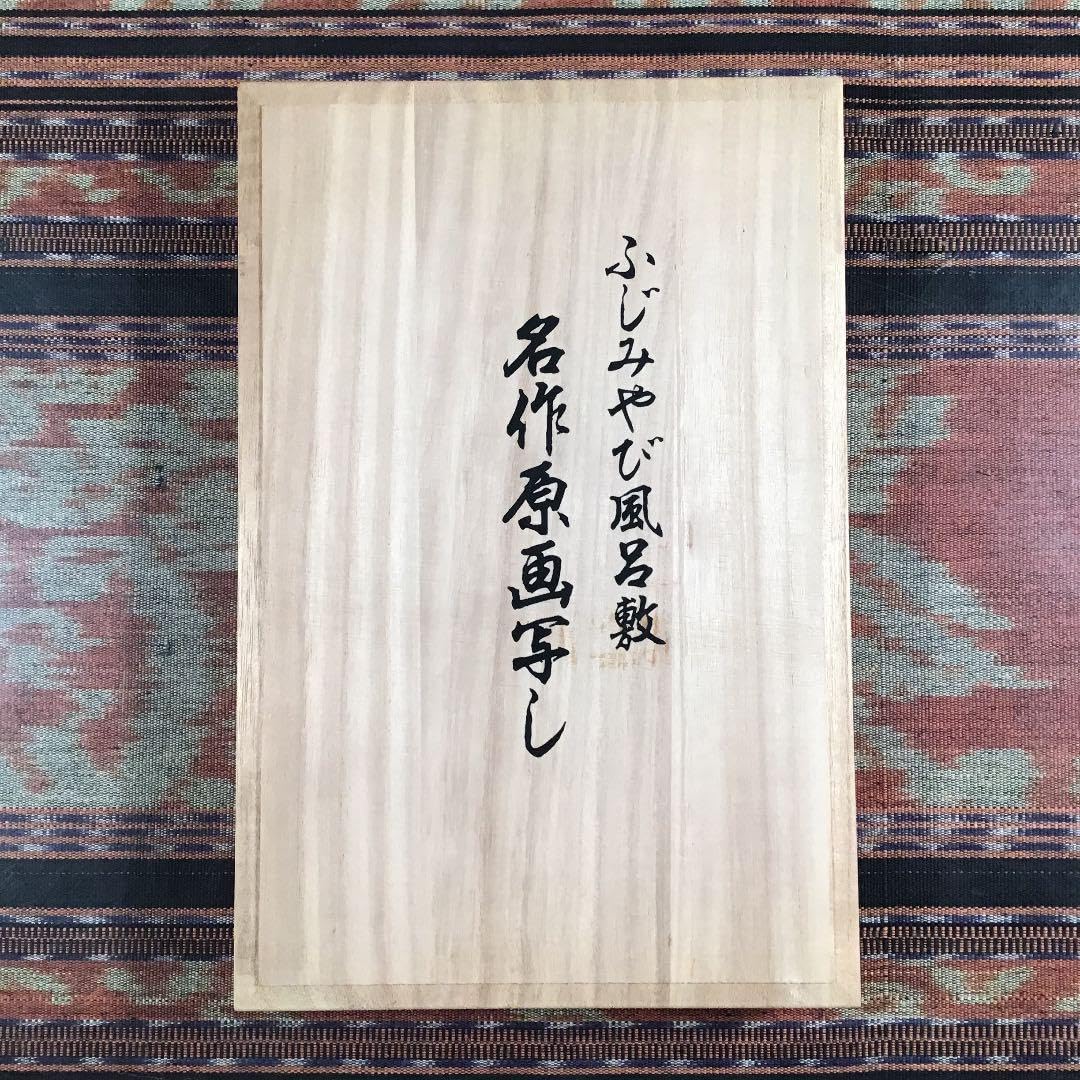 ふじみやび風呂敷
名作原画写し